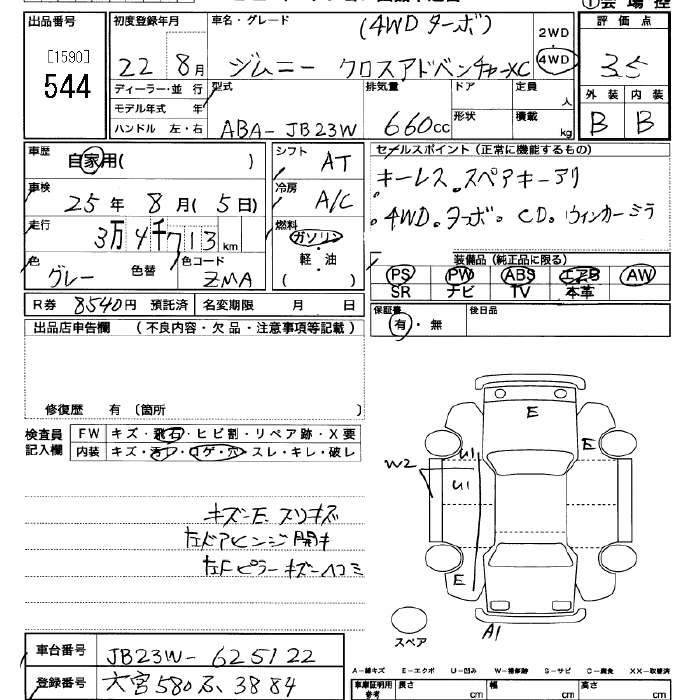 出品番号 初度登録年月 車名・グレード (4WD ターボ) 評価点
[1590] 2WD
544 22 8月 ジムニー クロスアドベンチャーXC 4WD 3.5
ディーラー・並行 型式 排気量 ドア 定員 外装 内装
モデル年式 年 人
ハンドル 左・右 ABA-JB23W 660cc 形状 積載 kg B B
車歴 自家用( ) シフト AT セールスポイント(正常に機能するもの)
車検 25年 8月(5日) 冷房 A/C キーレス。スペアキーアリ
走行 3万4千713km 燃料 ガソリン 4WD。ターボ。CD。ウィンカーミラ
色 グレー 色替 色コード ZMA 軽・油 ( ) 装備品(純正品に限る)
PS PW ABS エアB AW
SR ナビ TV 本革
R券 8540円 預託済 名変期限 月 日 保証書 有・無 後日品
出品店申告欄 (不良内容・欠品・注意事項等記載)
修復歴 有 (箇所 )
検査員 FW キズ・飛石・ヒビ割・リペア跡・X要
記入欄 内装 キズ・汚れ・コゲ・穴・スレ・キレ・破レ
E
E
U1
W2 U1
キズ-E スリキズ
左ドアヒンジ開キ
左Fピラーキズ-ヘコミ
E
A1
スペア
車台番号 JB23W-625122
登録番号 大宮580 3884
A-線キズ E-エクボ U-凹み W-補修跡 S-サビ C-腐食 XX-取替済
車庫証明用参考 長さ cm 幅 cm 高さ cm